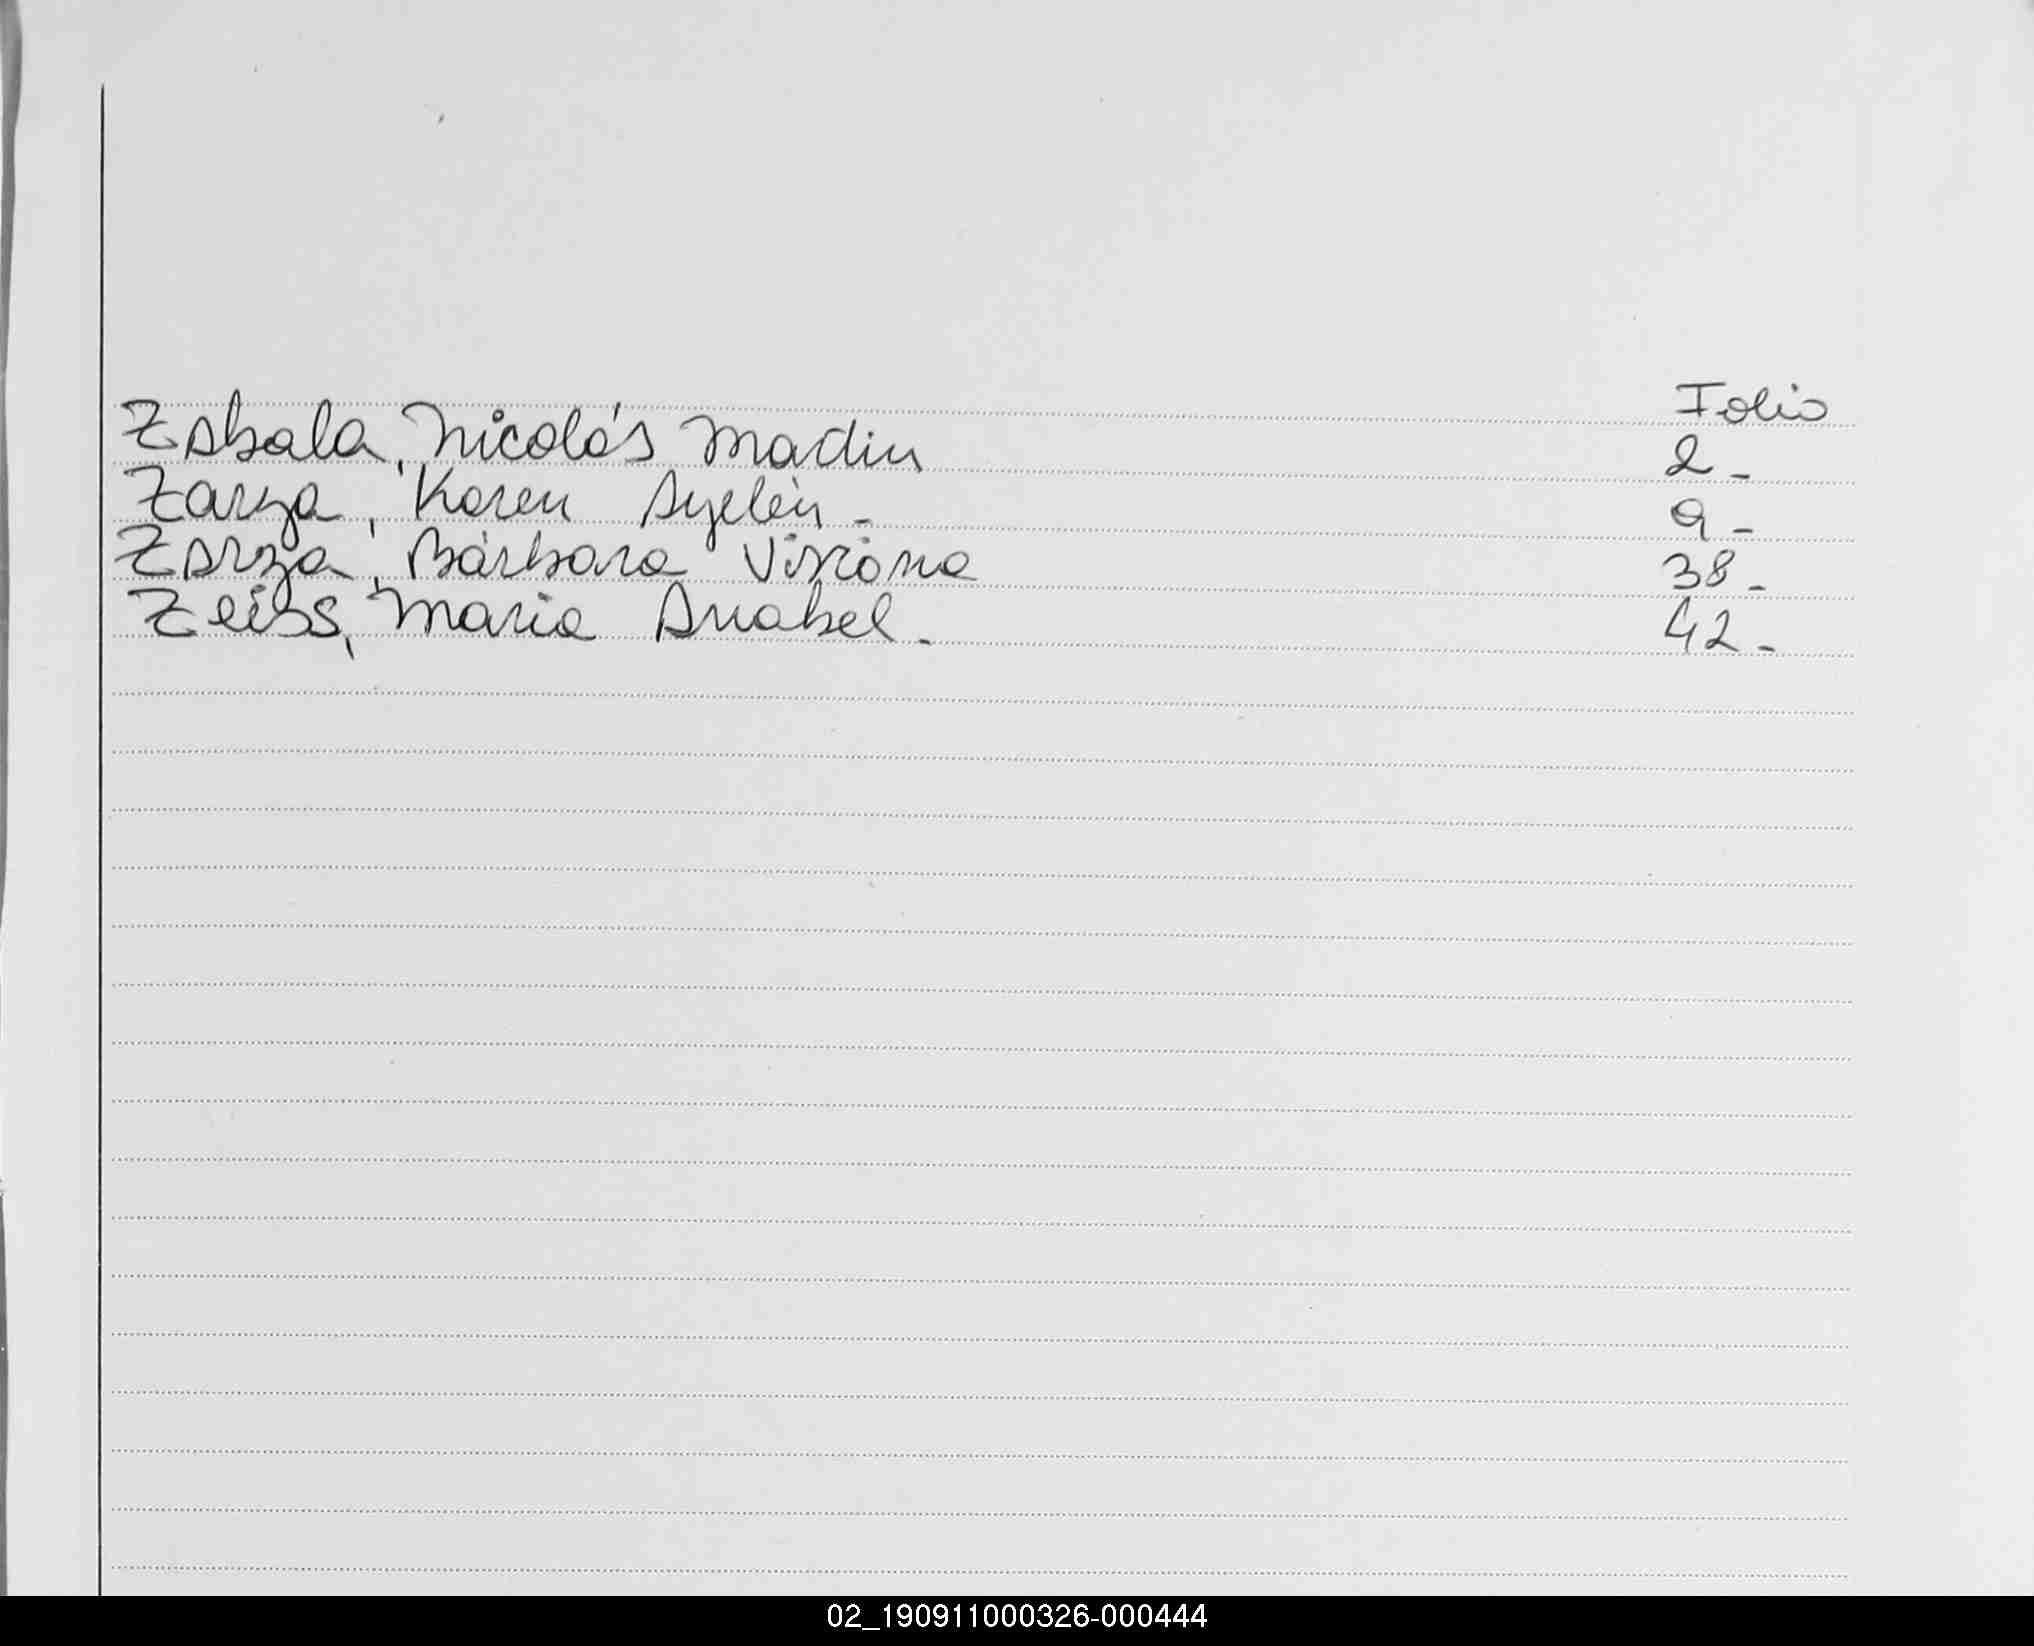 Folio
Zabala, Nicolás Madin 2-
Zarza, Karen Ayelén- 9-
Zarza, Bárbara 38-
Zeiss, Maria Anabel- 42-
02_190911000326-000444